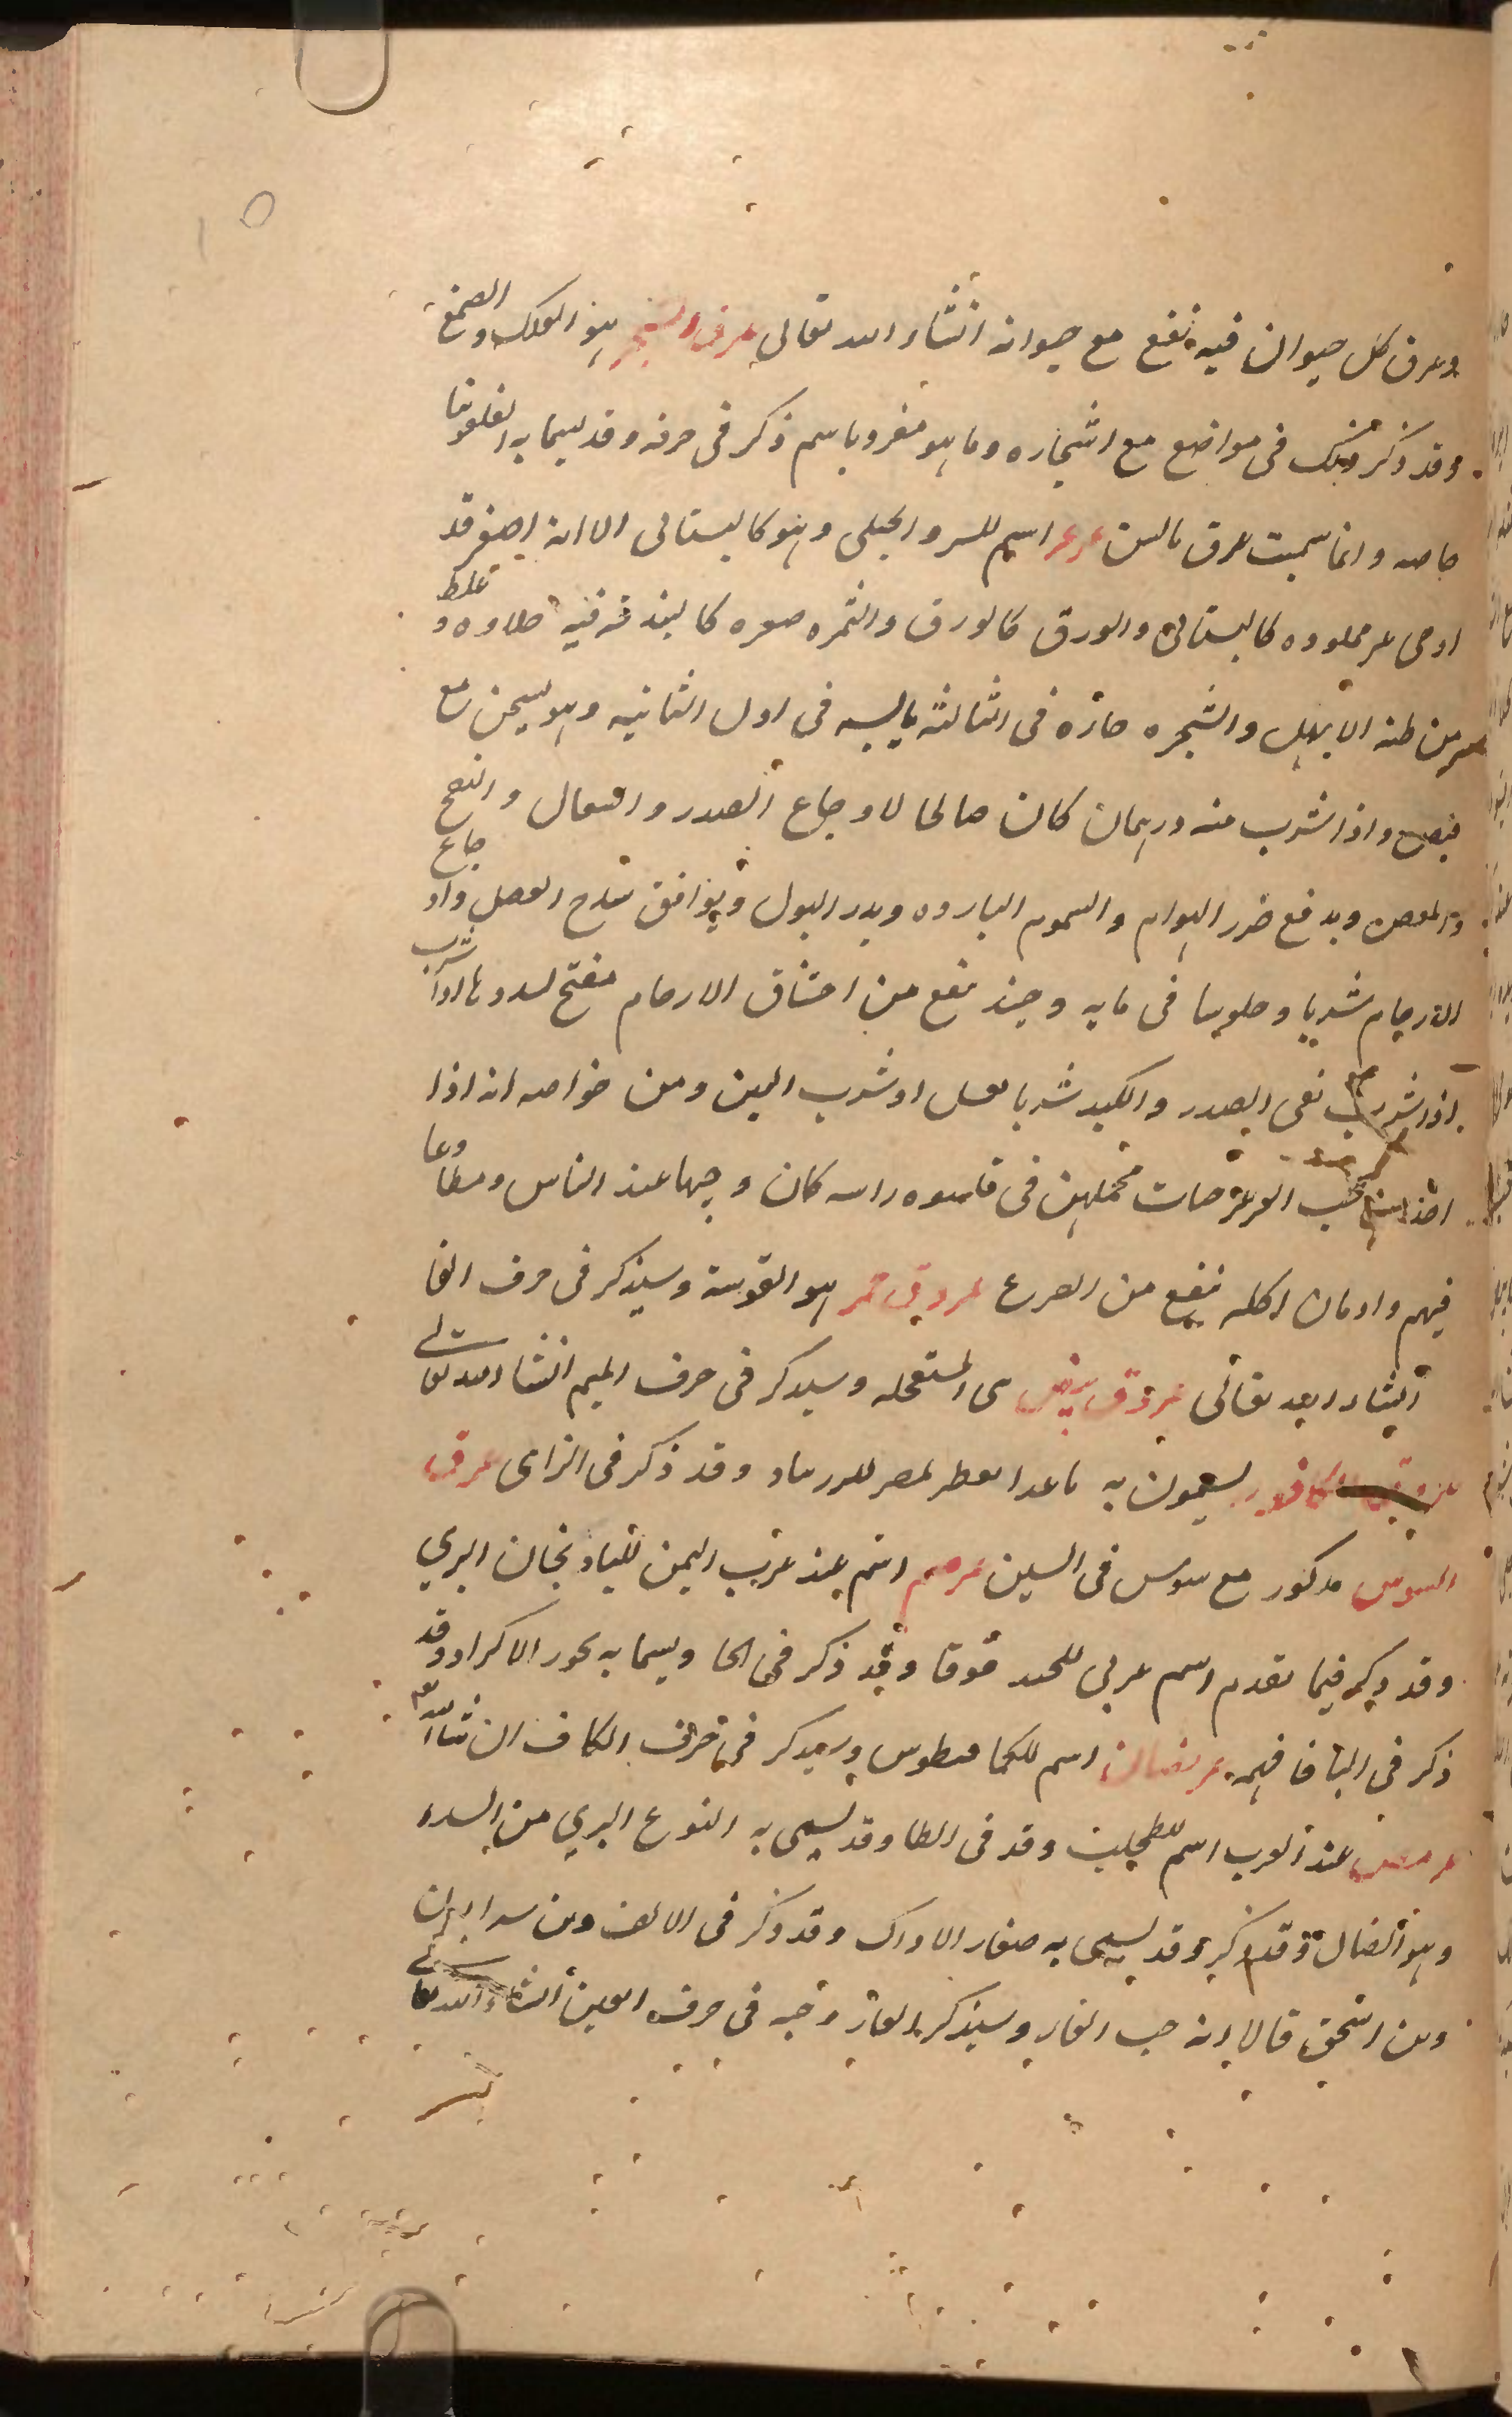 وعرق كل حيوان فيه نفع مع حيوانه انشاء الله تعالى عرق الشجر هو العلك والصمغ
وقد ذكر في مواضع مع اشجاره وما هو مفرد باسم ذكر في حرفه وقد يسما به
خاصه وانما سميت عرق عرعر اسم للسرو الجبلى وهو كالبستانى الا انه اصغر قد
كالبستانى والورق كالورق والثمره صعره كالبندقه فيه حلاوه و غلط
من طنه الابهل والشجره حاره في الثالثه يابسه في اول الثانيه وهو يسخن مع
قبض واذا شرب منه درهمان كان صالحا لاوجاع الصدر والسعال والنفخ
والمغص ويدفع ضرر الهوام والسموم البارده ويدر البول ويوافق العصل واوجاع
الارحام شربا وجلوسا في مايه وحيد نفع من اختناق الارحام مفتح لسددها اذا شرب
اذا شرب نقى الصدر والكبد شربا بعسل او شرب التين ومن خواصه انه اذا
اخذ حب العرعر في قلنسوه راسه كان وجيها عند الناس ومطاعا
فيهم وادمان اكله ينفع من الصرع عروق حمر هو الفوسه وسيذكر في حرف الفا
انشاء الله تعالى عروق بيض هى المستعجله وسيذكر في حرف الميم انشاء الله تعالى
عروق الكافور يسمون به ما عدا بمصر وقد ذكر في الزاى عرق
السوس مذكور مع سوس في السين عرصم اسم عند عرب اليمن للباذنجان البري
وقد ذكر فيما تقدم اسم عربي للحندقوقا وقد ذكر في الحا ويسما به بخور الاكراد وقد
ذكر في البا فافهم عريضان اسم للكمافيطوس وسيذكر في حرف الكاف ان شا الله
عرمض عند العرب اسم للطحلب وقد في الطا وقد يسمى به النوع البري من السدر
وهو الضال وقد ذكر وقد يسمى به صغار الاراك وقد ذكر في الالف وبن سرابيون
وبن اسحق قالا انه حب الغار وسيذكر الغار وحبه في حرف العين انشاء الله تعالى